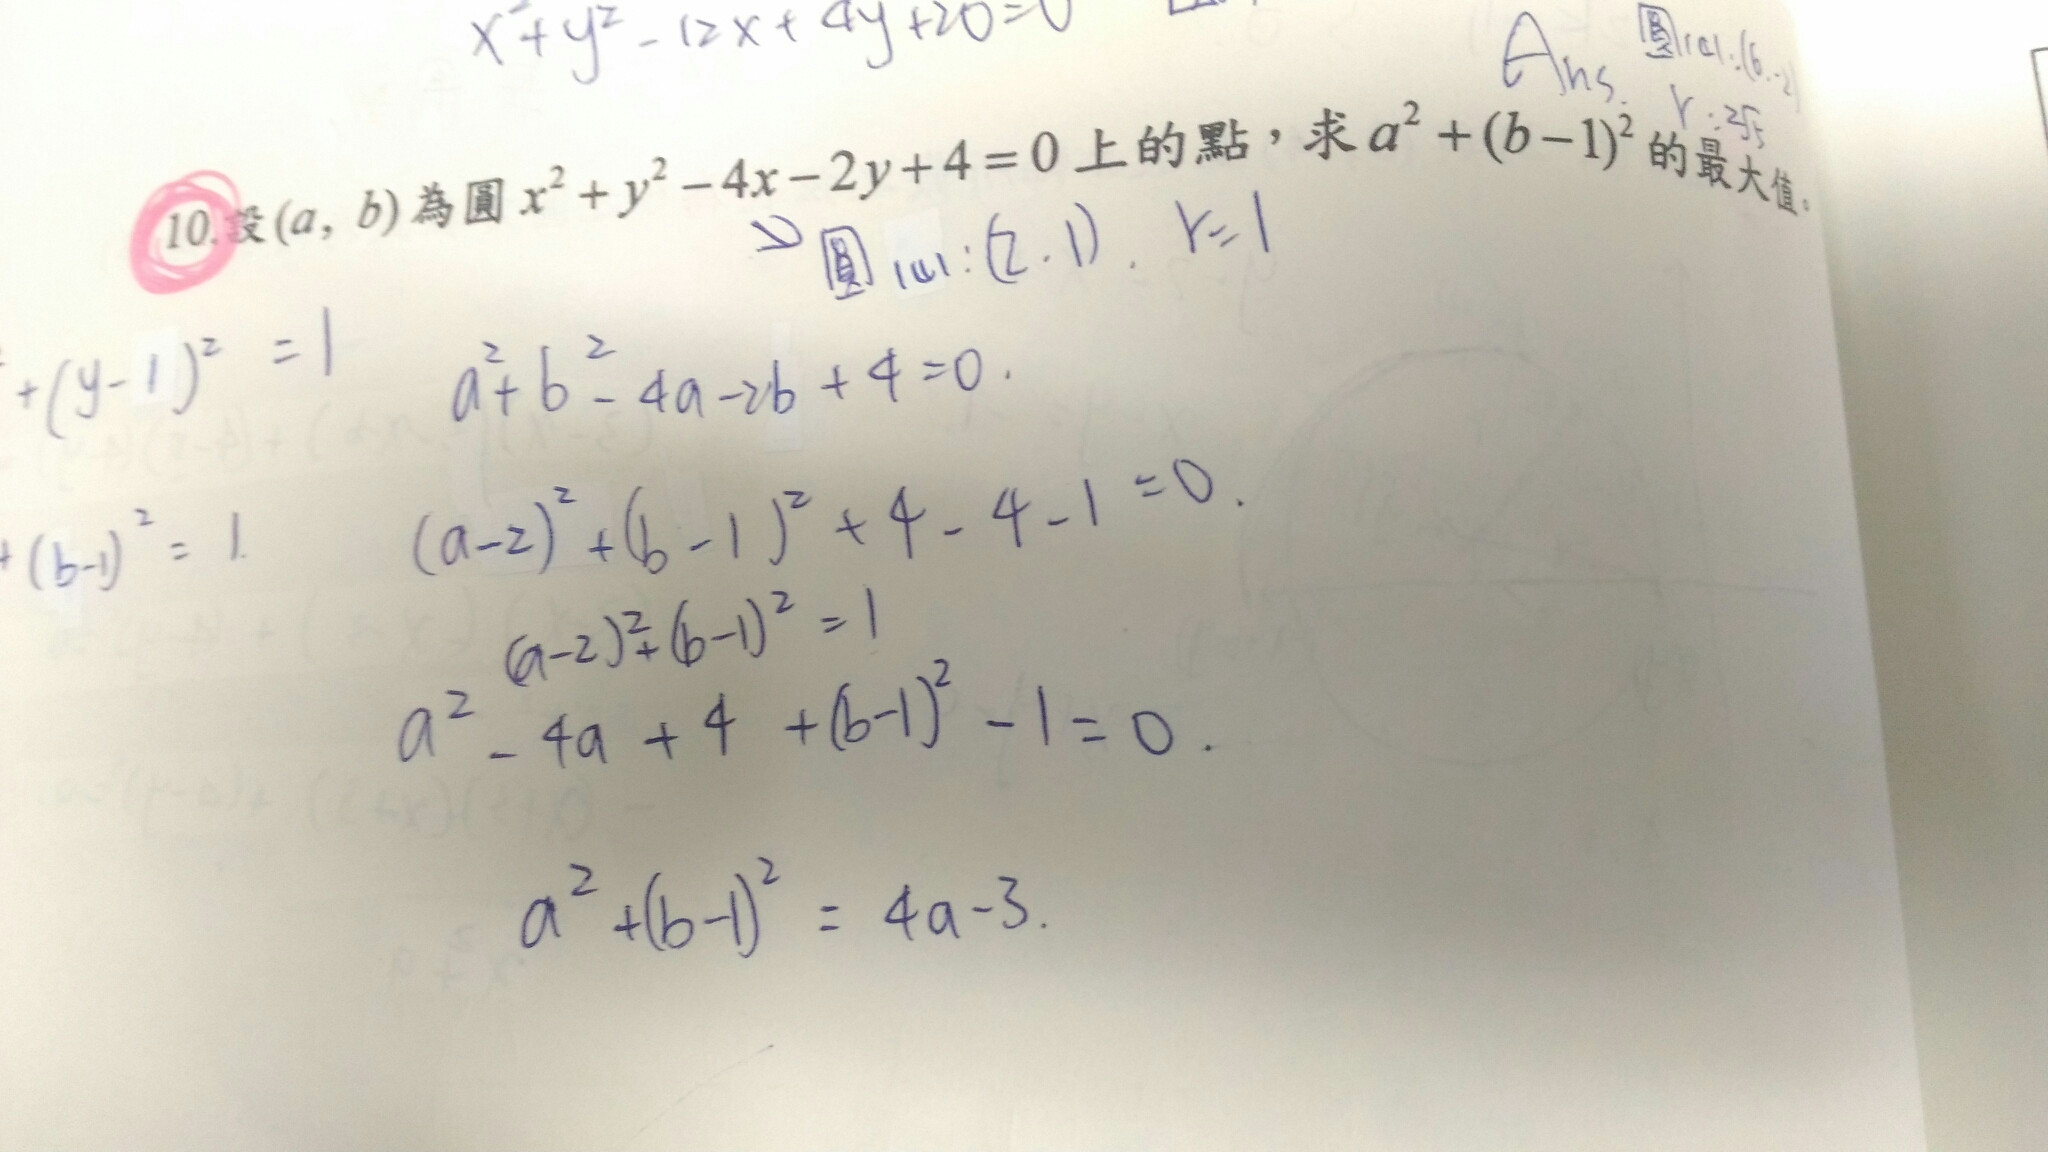 x²+y²-12x+4y+20=0
Ans. 圓心:(6,-2)
r:2√5
10.設(a, b)為圓x²+y²-4x-2y+4=0上的點,求a²+(b-1)²的最大值。
圓心:(2.1). r=1
+(y-1)²=1
a²+b²-4a-2b+4=0.
(a-2)²+(b-1)²+4-4-1=0.
+(b-1)²=1.
(a-2)²+(b-1)²=1
a²-4a+4+(b-1)²-1=0.
a²+(b-1)²=4a-3.